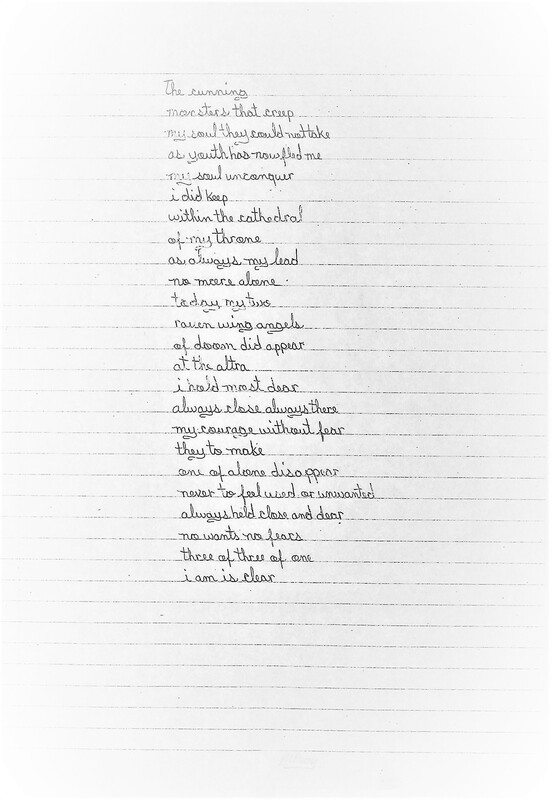 The cunning
monsters that creep
my soul they could not take
as youth has now fled me
my soul unconquer
i did keep
within the cathedral
of my throne
as always my lead
no more alone
today my two
raven wing angels
of doom did appear
at the altra
i hold most dear
always close always there
my courage without fear
they to make
one of alone disappear
never to feel used or unwanted
always held close and dear
no wants no fears
three of three of one
i am is clear